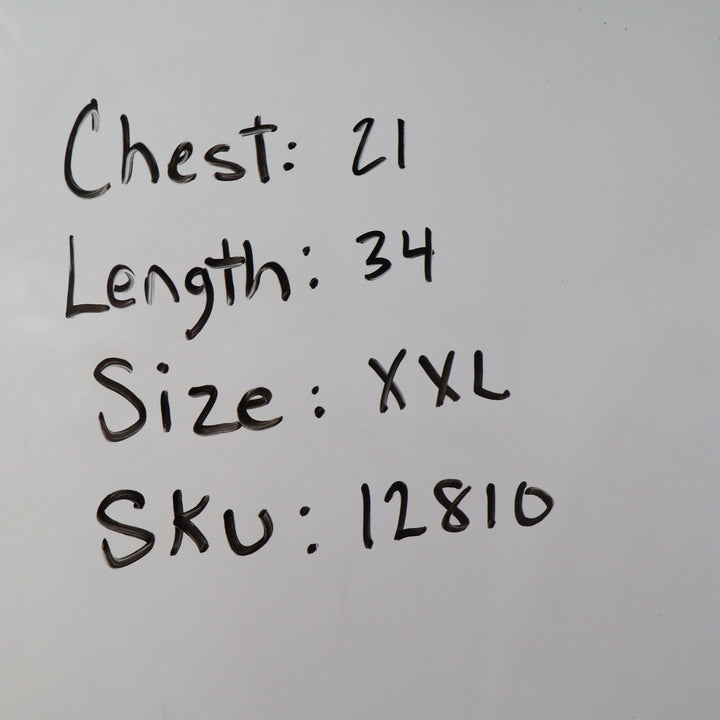 Chest: 21
Length: 34
Size: XXL
SKU: 12810